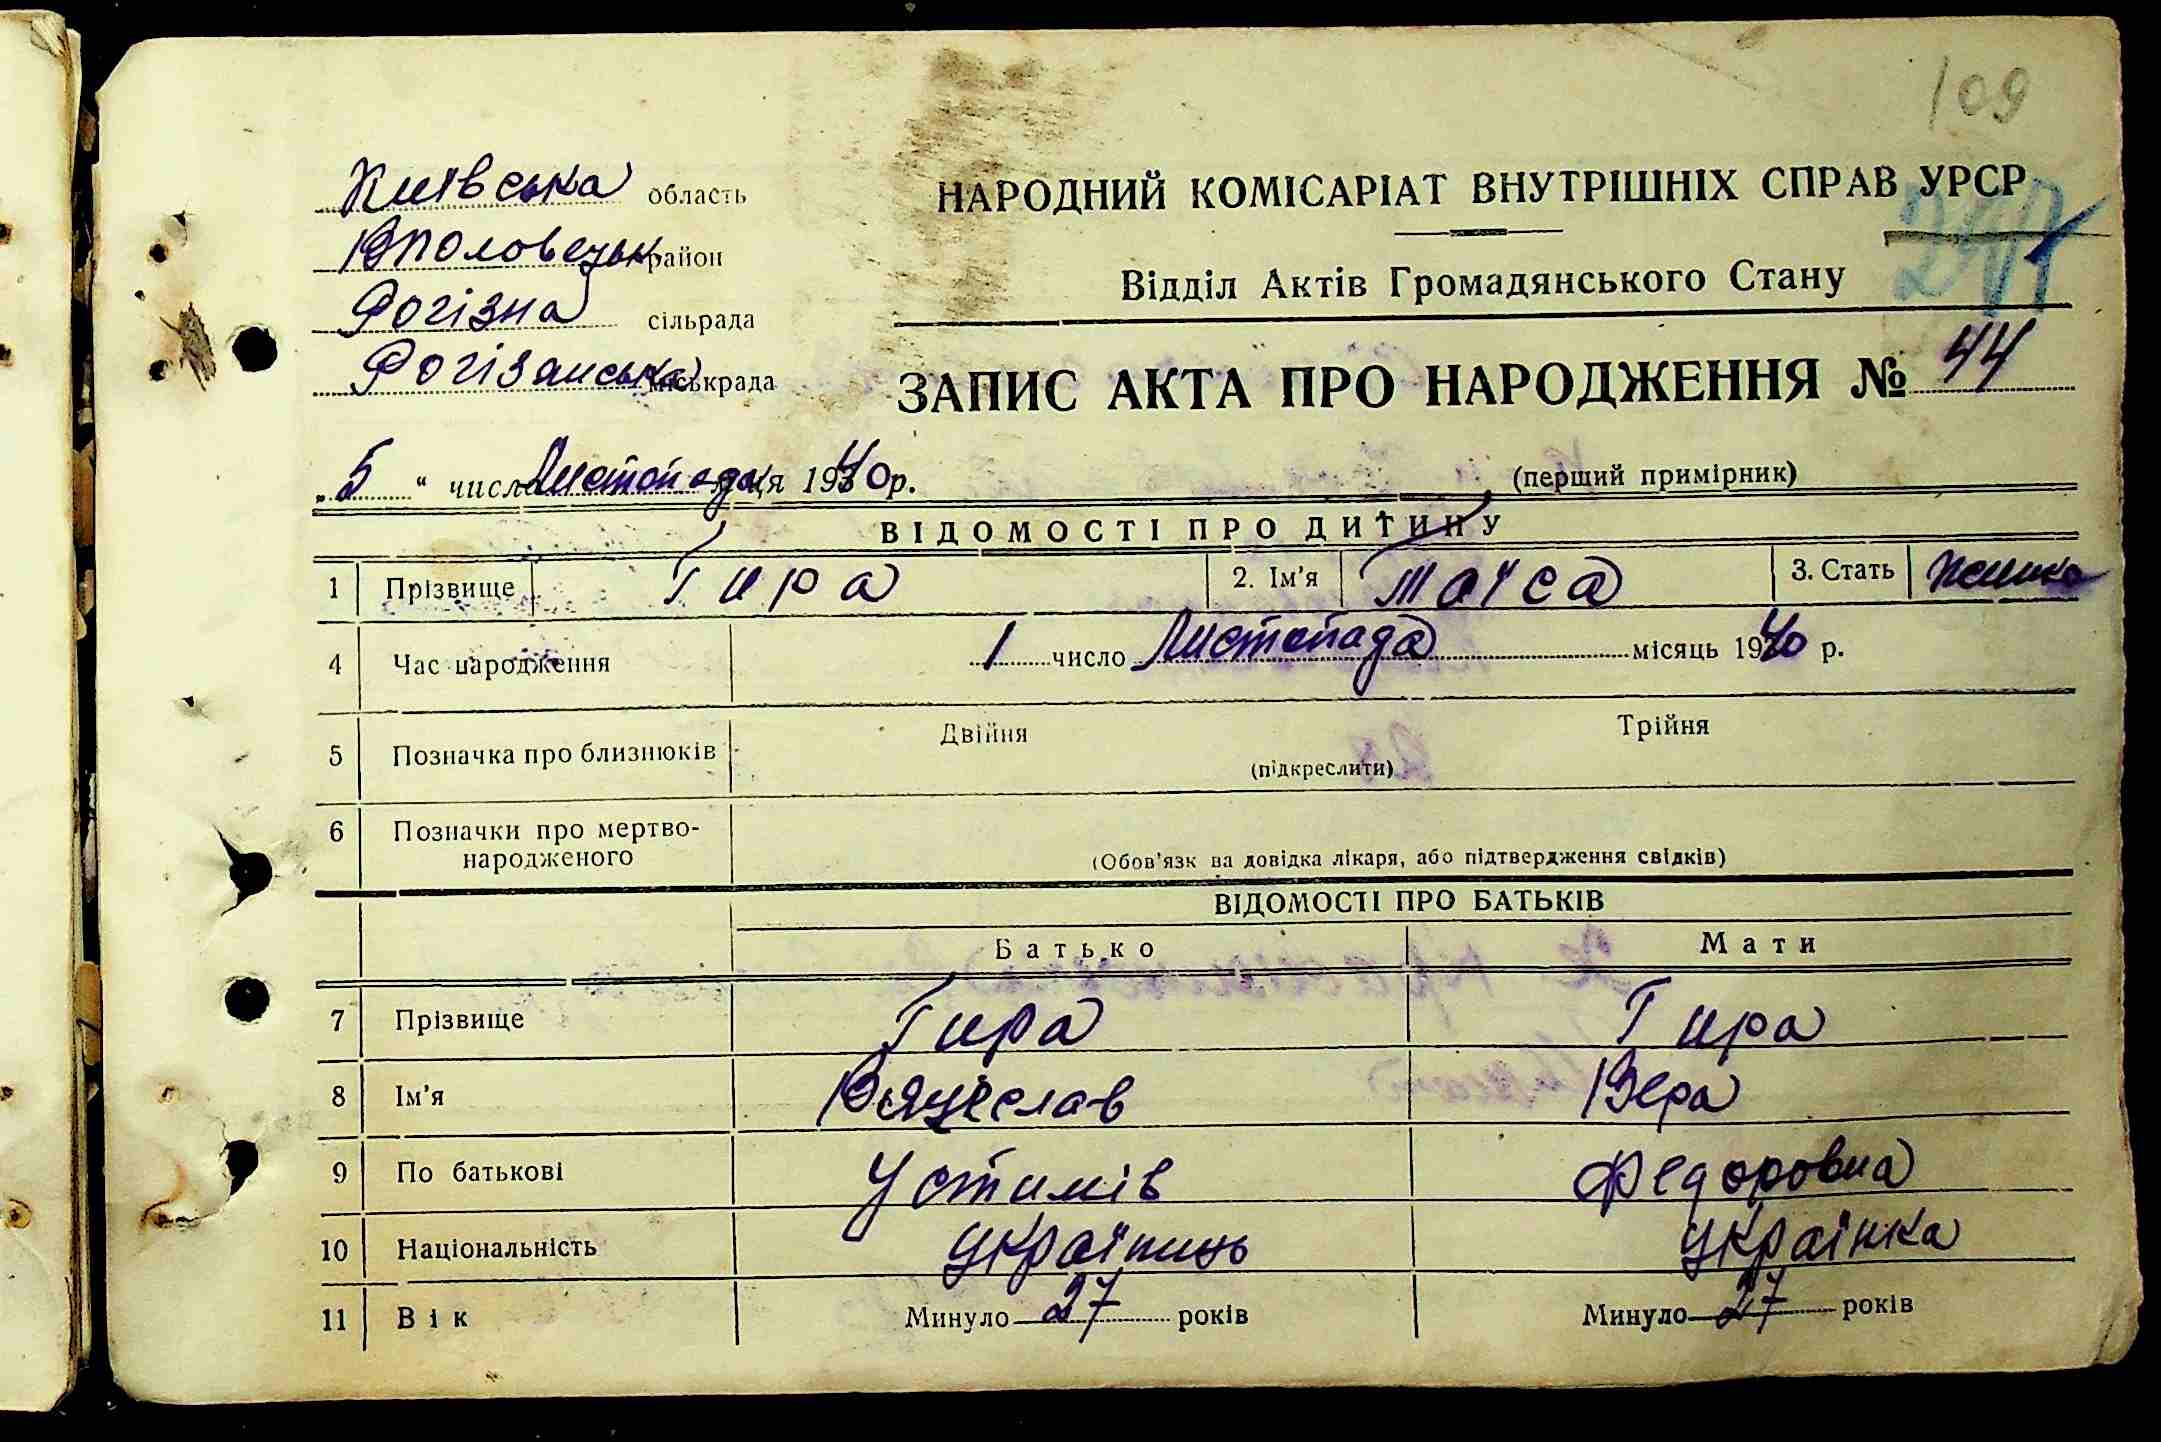 109
Київська область
Вполовецьк район
Рогізна сільрада
Рогізанська міськрада
НАРОДНИЙ КОМІСАРІАТ ВНУТРІШНІХ СПРАВ УРСР
Відділ Актів Громадянського Стану
ЗАПИС АКТА ПРО НАРОДЖЕННЯ № 44
„5“ числа Листопада м-ця 1940 р.
(перший примірник)
ВІДОМОСТІ ПРО ДИТИНУ
1 Прізвище Гира 2. Ім'я Таїса 3. Стать
4 Час народження 1 число Листопада місяць 1940 р.
5 Позначка про близнюків Двійня Трійня
(підкреслити)
6 Позначки про мертво-
народженого
(Обов'язк ва довідка лікаря, або підтвердження свідків)
ВІДОМОСТІ ПРО БАТЬКІВ
Батько Мати
7 Прізвище Гира Гира
8 Ім'я Вячеслав Вера
9 По батькові Устимів Федоровна
10 Національність українець українка
11 Вік Минуло 27 років Минуло 27 років